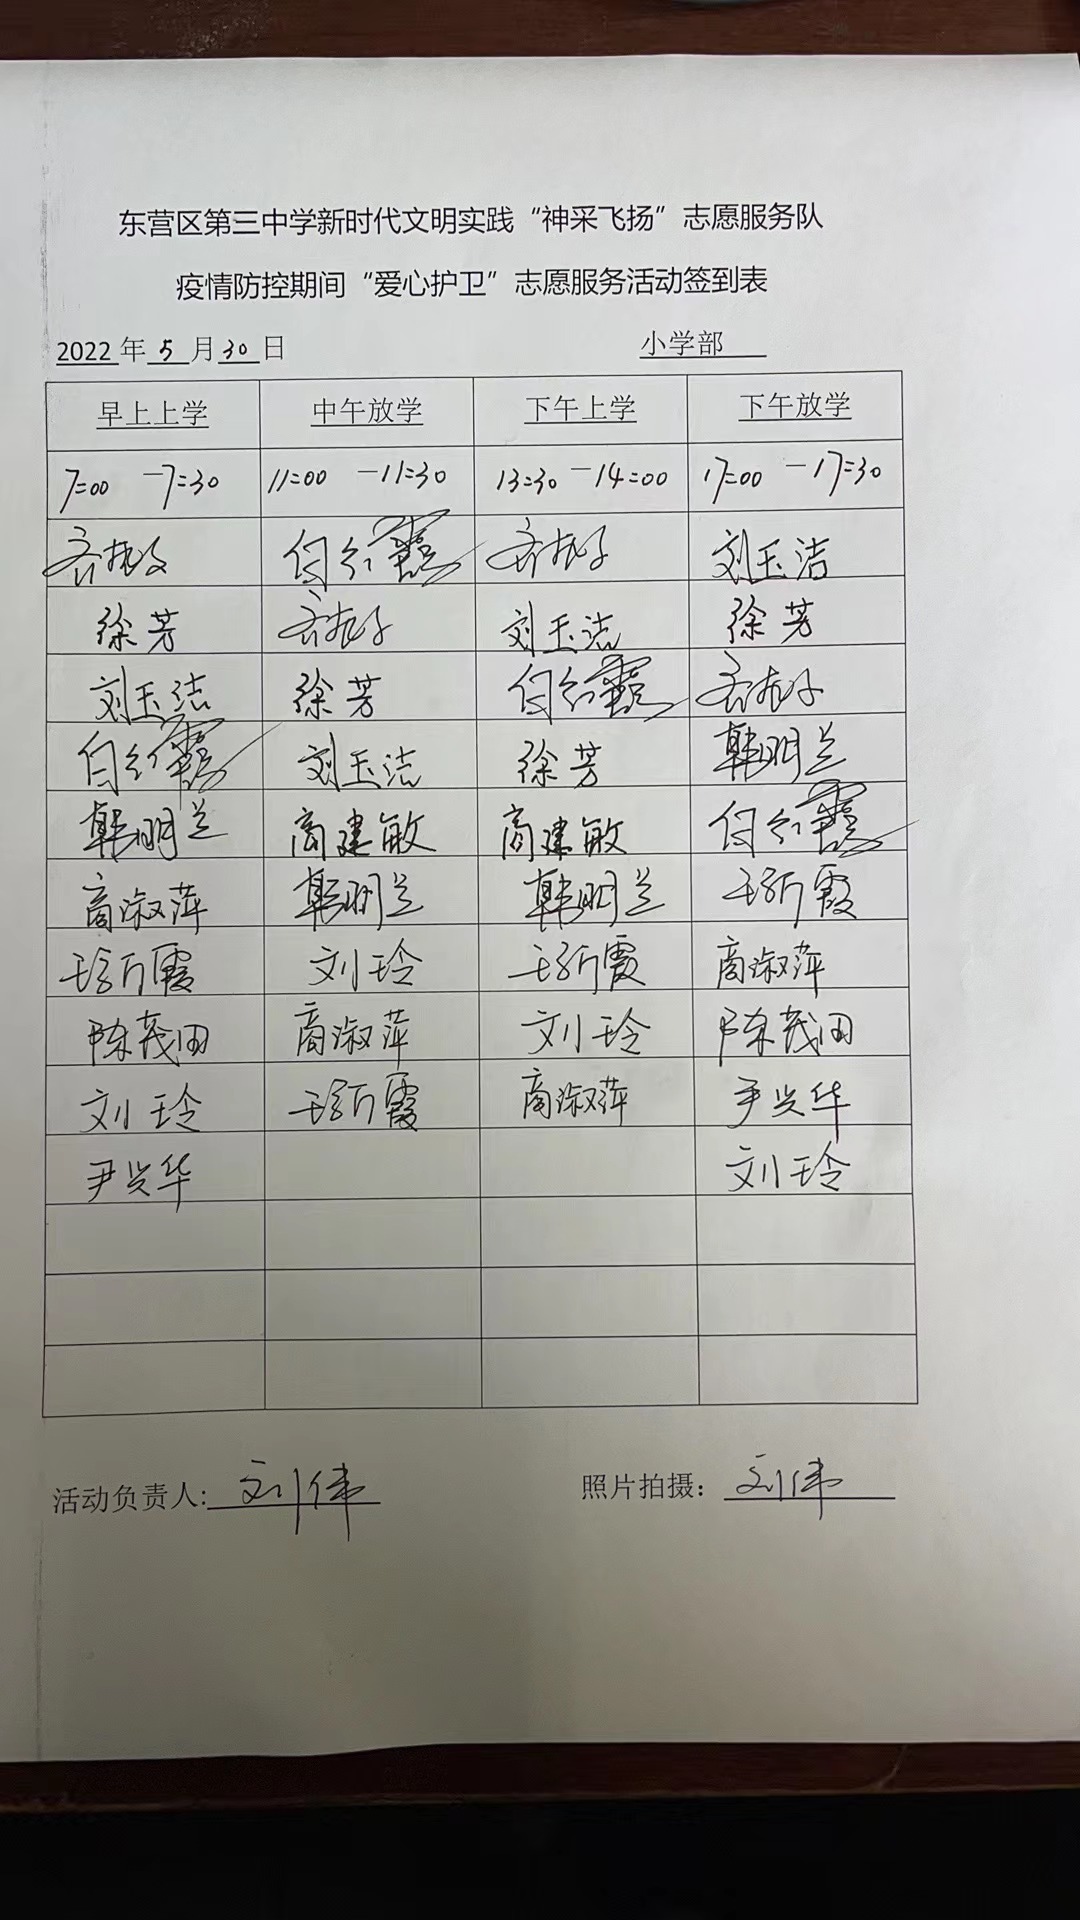 东营区第三中学新时代文明实践“神采飞扬”志愿服务队
疫情防控期间“爱心护卫”志愿服务活动签到表
2022年5月30日 小学部
早上上学 中午放学 下午上学 下午放学
7=00 -7=30 11=00 -11=30 13=30 -14=00 17=00 -17=30
刘玉洁
徐芳 刘玉洁 徐芳
刘玉洁 徐芳
刘玉洁 徐芳 韩明兰
韩明兰 商建敏 商建敏
商淑萍 韩明兰 韩明兰
刘玲 商淑萍
陈茂田 商淑萍 刘玲 陈茂田
刘玲 商淑萍 尹兴华
尹兴华 刘玲
活动负责人:刘伟 照片拍摄：刘伟